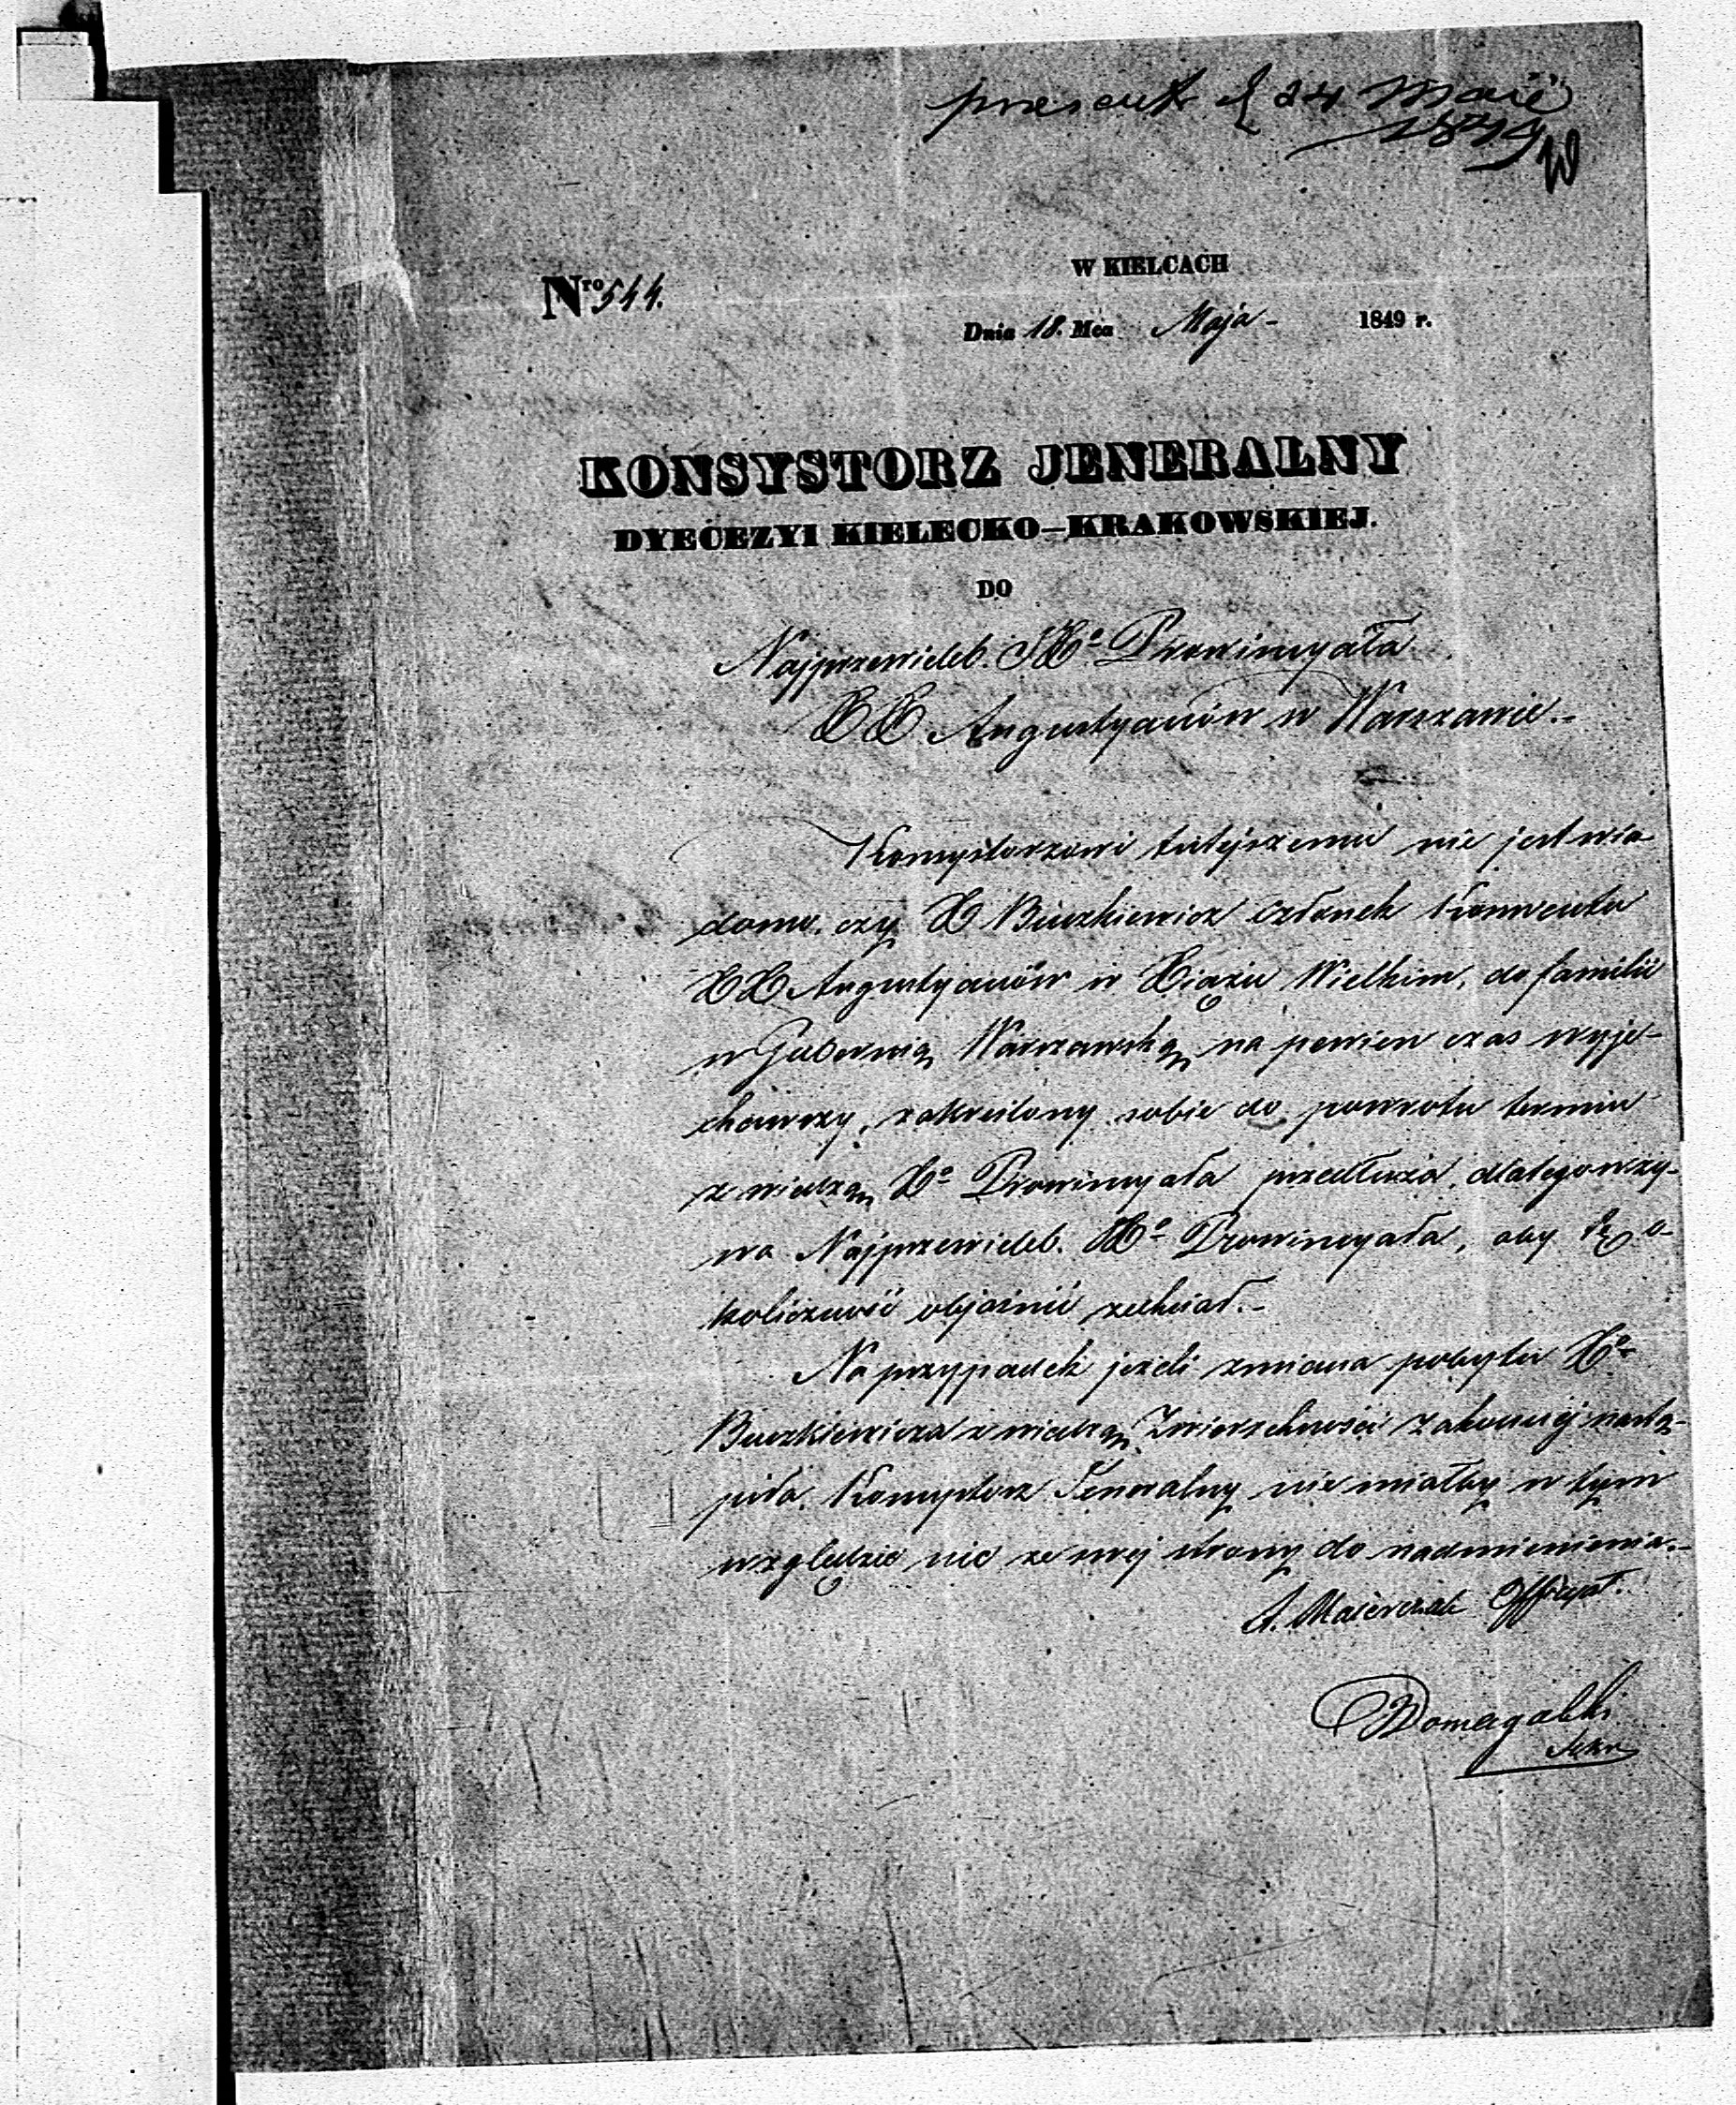 present d 24 Maii
1849
Nro 544.
W KIELCACH
Dnia 18. Mca Maja - 1849 r.
KONSYSTORZ JENERALNY
DYECEZYI KIELECKO-KRAKOWSKIEJ.
DO
Najprzewieleb. JXº Prowincyała
XX. Augustyanów w Warszawie.-
Konsystorzowi tutejszemu nie jest wia-
domo, czy X Buczkiewicz członek Konwentu
XX Augustyanów w Xiążu Wielkim, do familii
w Gubernią Warszawską na pewien czas wyje-
chawszy, zakreślony sobie do powrotu termin
z wiedzą Xº Prowincyała przedłuża, dlatego wzy-
wa Najprzewieleb. Xº Prowincyała, aby tę o-
koliczność objaśnić zechciał.-
Na przypadek jeżeli zmiana pobytu Xº
Buczkiewicza z wiedzą Zwierzchności zakonnej nastą-
piła, Konsystorz Jeneralny nie miałby w tym
względzie nic ze swej strony do nadmienienia.-
A. Majerczak Offcyał.
Domagalski
Sekr